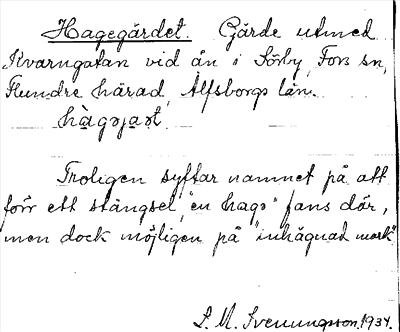 Hagegärdet. Gärde utmed
Kvarngatan vid ån i Sörby, Fors sn,
Flundre härad, Älfsborgs län.
hàgəjaṣt
Troligen syftar namnet på att
förr ett stängsel, "en hage" fans där,
men dock möjligen på "inhägnad mark"
L. M. Svenungsson, 1934.